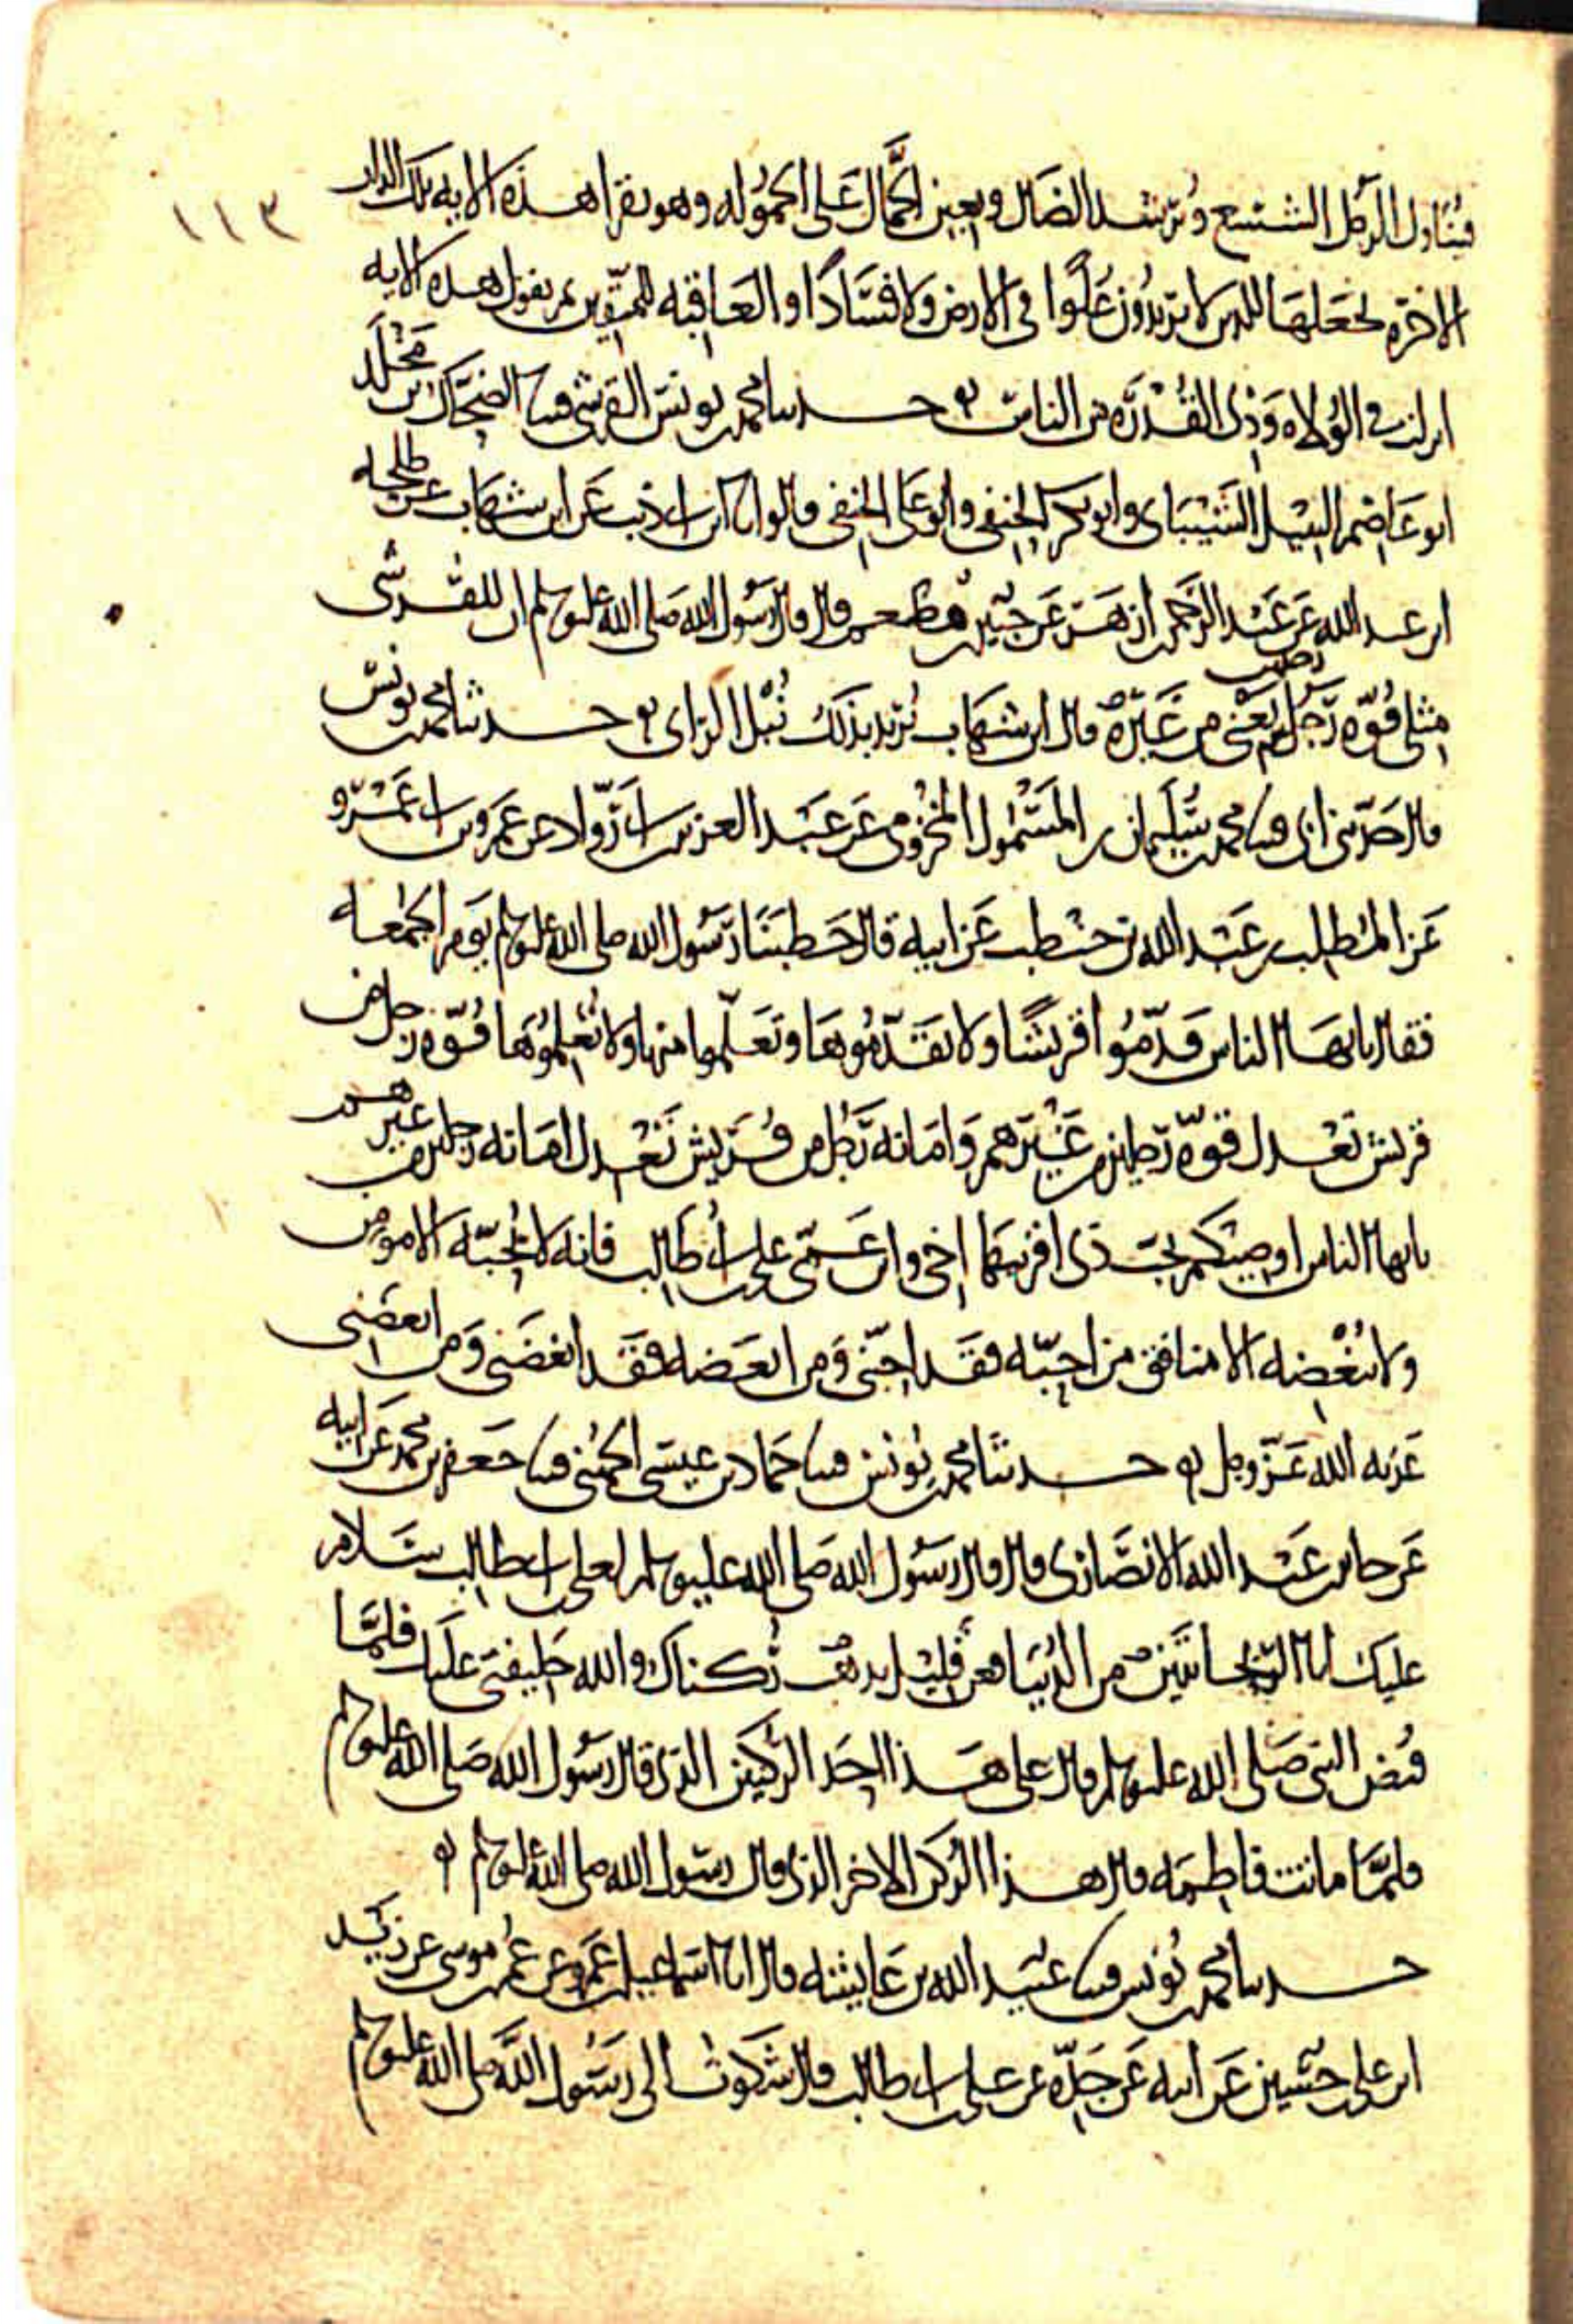 ١١٣
فيناول الرجل الشسع ويرشد الضال ويعين الحمال على الحموله وهو يقرا هذه الايه تلك الدار
الاخرة نجعلها للذين لا يريدون علوا في الارض ولا فسادا والعاقبه للمتقين ثم يقول هذه الايه
انزلت في الولاه وذي القدرة من الناس حدثنا محمد بن يونس القرشي قثنا الضحاك بن مخلد
ابو عاصم النبيل الشيباني وابو بكر الحنفي وابو علي الحنفي قالوا انا ابن ابي ذئب عن ابن شهاب عن طلحه
ابن عبد الله عن عبد الرحمن ازهر عن جبير بن مطعم قال قال رسول الله صلى الله عليه وسلم ان للقرشي
مثلي قوة رجل يعني من غيره قال ابن شهاب يريد بذلك نبل الراي حدثنا محمد بن يونس
قال حدثني ابي قثنا محمد بن سليمان بن المسمول المخزومي عن عبد العزيز بن ابي رواد عن عمرو بن ابي عمرو
عن المطلب بن عبد الله بن حنطب عن ابيه قال خطبنا رسول الله صلى الله عليه وسلم يوم الجمعه
فقال يايها الناس قدموا قريشا ولا تقدموها وتعلموا منها ولا تعلموها قوة رجل من
قريش تعدل قوة رجلين من غيرهم وامانه رجل من قريش تعدل امانه رجلين من غيرهم
يايها الناس اوصيكم بحب ذي اقربيها اخي وابن عمي علي بن ابي طالب فانه لا يحبه الا مومن
ولا يبغضه الا منافق من احبه فقد احبني ومن ابغضه فقد ابغضني ومن ابغضني
عذبه الله عز وجل حدثنا محمد بن يونس قثنا حماد بن عيسى الجهني قثنا جعفر بن محمد عن ابيه
عن جابر بن عبد الله الانصاري قال قال رسول الله صلى الله عليه وسلم لعلي بن ابي طالب سلام
عليك ابا الريحانتين من الدنيا فعن قليل يذهب ركناك والله خليفتي عليك فلما
قبض النبي صلى الله عليه وسلم قال علي هذا احد الركنين الذي قال رسول الله صلى الله عليه وسلم
فلما ماتت فاطمه قال هذا الركن الاخر الذي قال رسول الله صلى الله عليه وسلم
حدثنا محمد بن يونس قثنا عبيد الله بن عايشه قال انا اسماعيل بن عمرو عن عمر بن موسى عن زيد
ابن علي بن حسين عن ابيه عن جده عن علي بن ابي طالب قال شكوت الى رسول الله صلى الله عليه وسلم